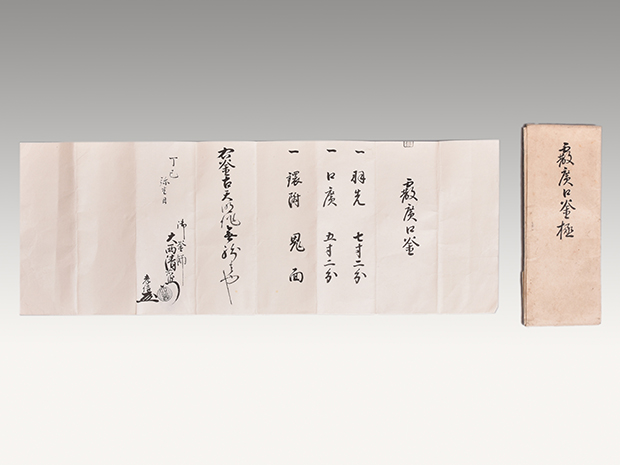 霰廣口釜
一 羽先 七寸二分
一 口廣 五寸二分
一 環附 鬼面
右釜古天明作無紛者也
丁巳
弥生日
御釜師
大西清
霰廣口釜極